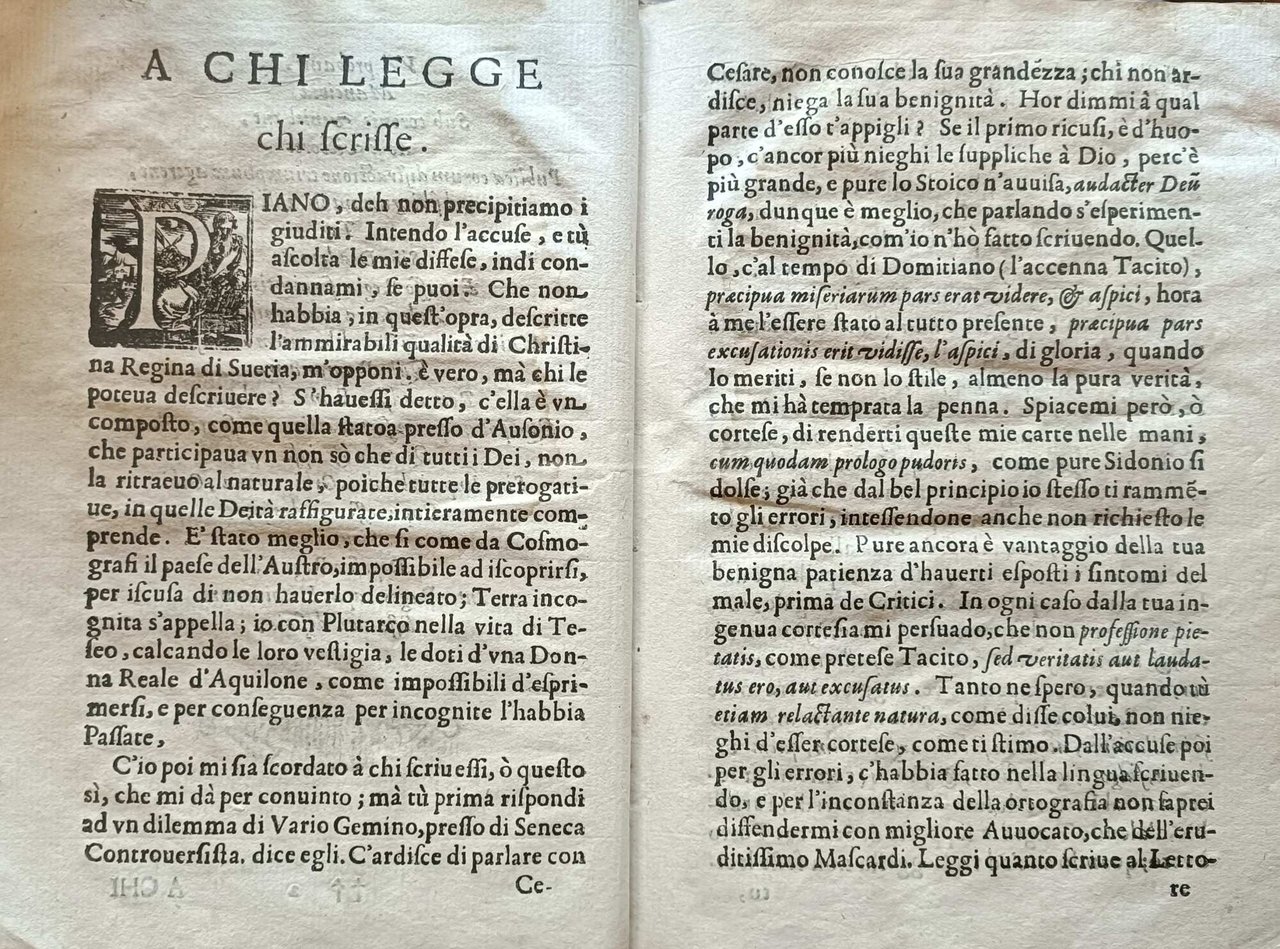 A CHI LEGGE
chi ſcriſſe.
PIANO, deh non precipitiamo i
giuditi. Intendo l'accuſe, e tù
aſcolta le mie diffeſe, indi con-
dannami, ſe puoi. Che non
habbia, in queſt'opra, deſcritte
l'ammirabili qualità di Chriſti-
na Regina di Suetia, m'opponi. è vero, mà chi le
poteua deſcriuere? S'haueſſi detto, c'ella è vn
compoſto, come quella ſtatoa preſſo d'Auſonio,
che participaua vn non sò che di tutti i Dei, non
la ritraeuo al naturale, poiche tutte le prerogati-
ue, in quelle Deità raffigurate, intieramente com-
prende. E' ſtato meglio, che ſi come da Coſmo-
grafi il paeſe dell'Auſtro, impoſſibile ad iſcoprirſi,
per iſcuſa di non hauerlo delineato; Terra inco-
gnita s'appella; io con Plutarco nella vita di Te-
ſeo, calcando le loro veſtigia, le doti d'vna Don-
na Reale d'Aquilone, come impoſſibili d'eſpri-
merſi, e per conſeguenza per incognite l'habbia
Paſſate,
C'io poi mi ſia ſcordato à chi ſcriueſſi, ò queſto
sì, che mi dà per conuinto; mà tù prima riſpondi
ad vn dilemma di Vario Gemino, preſſo di Seneca
Controuerſiſta. dice egli. C'ardiſce di parlare con
Ce-
Ceſare, non conoſce la ſua grandézza; chi non ar-
diſce, niega la ſua benignità. Hor dimmi â qual
parte d'eſſo t'appigli? Se il primo ricuſi, è d'huo-
po, c'ancor più nieghi le ſuppliche à Dio, perc'è
più grande, e pure lo Stoico n'auuiſa, audacter Deū
roga, dunque è meglio, che parlando s'eſperimen-
ti la benignità, com'io n'hò fatto ſcriuendo. Quel-
lo, c'al tempo di Domitiano (l'accenna Tacito),
præcipua miſeriarum pars erat videre, & aſpici, hora
à me l'eſſere ſtato al tutto preſente, præcipua pars
excuſationis erit vidiſſe, l'aſpici, di gloria, quando
lo meriti, ſe non lo ſtile, almeno la pura verità,
che mi hà temprata la penna. Spiacemi però, ò
corteſe, di renderti queſte mie carte nelle mani,
cum quodam prologo pudoris, come pure Sidonio ſi
dolſe; già che dal bel principio io ſteſſo ti rammē-
to gli errori, inteſſendone anche non richieſto le
mie diſcolpe. Pure ancora è vantaggio della tua
benigna patienza d'hauerti eſpoſti i ſintomi del
male, prima de Critici. In ogni caſo dalla tua in-
genua corteſia mi perſuado, che non profeſſione pie-
tatis, come preteſe Tacito, ſed veritatis aut lauda-
tus ero, aut excuſatus. Tanto ne ſpero, quando tù
etiam relactante natura, come diſſe colui, non nie-
ghi d'eſſer corteſe, come ti ſtimo. Dall'accuſe poi
per gli errori, c'habbia fatto nella lingua ſcriuen-
do, e per l'inconſtanza della ortografia non ſaprei
diffendermi con migliore Auuocato, che dell'eru-
ditiſſimo Maſcardi. Leggi quanto ſcriue al Letto-
re